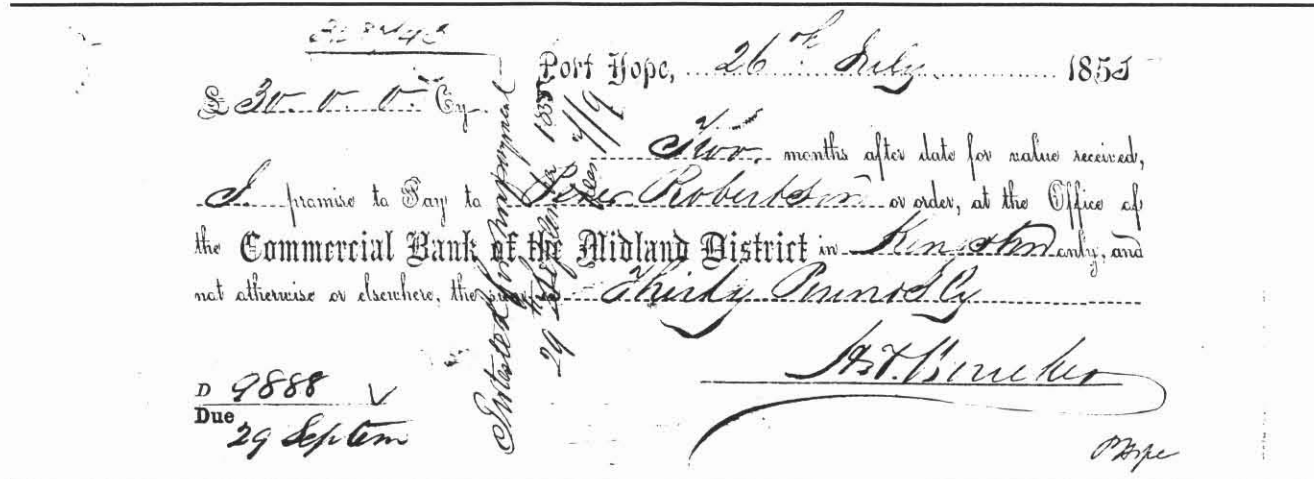 Port Hope, 26th July 1855
£ 30. 0. 0. Cy
Two months after date for value received,
I promise to Pay to Peter Robertson or order, at the Office of
the Commercial Bank of the Midland District in Kingston only, and
not otherwise or elsewhere, the sum of Thirty Pounds Cy
D 9888
Due
29 Septem
P Hope
Protested for nonpayment
29th September 1855
7/9